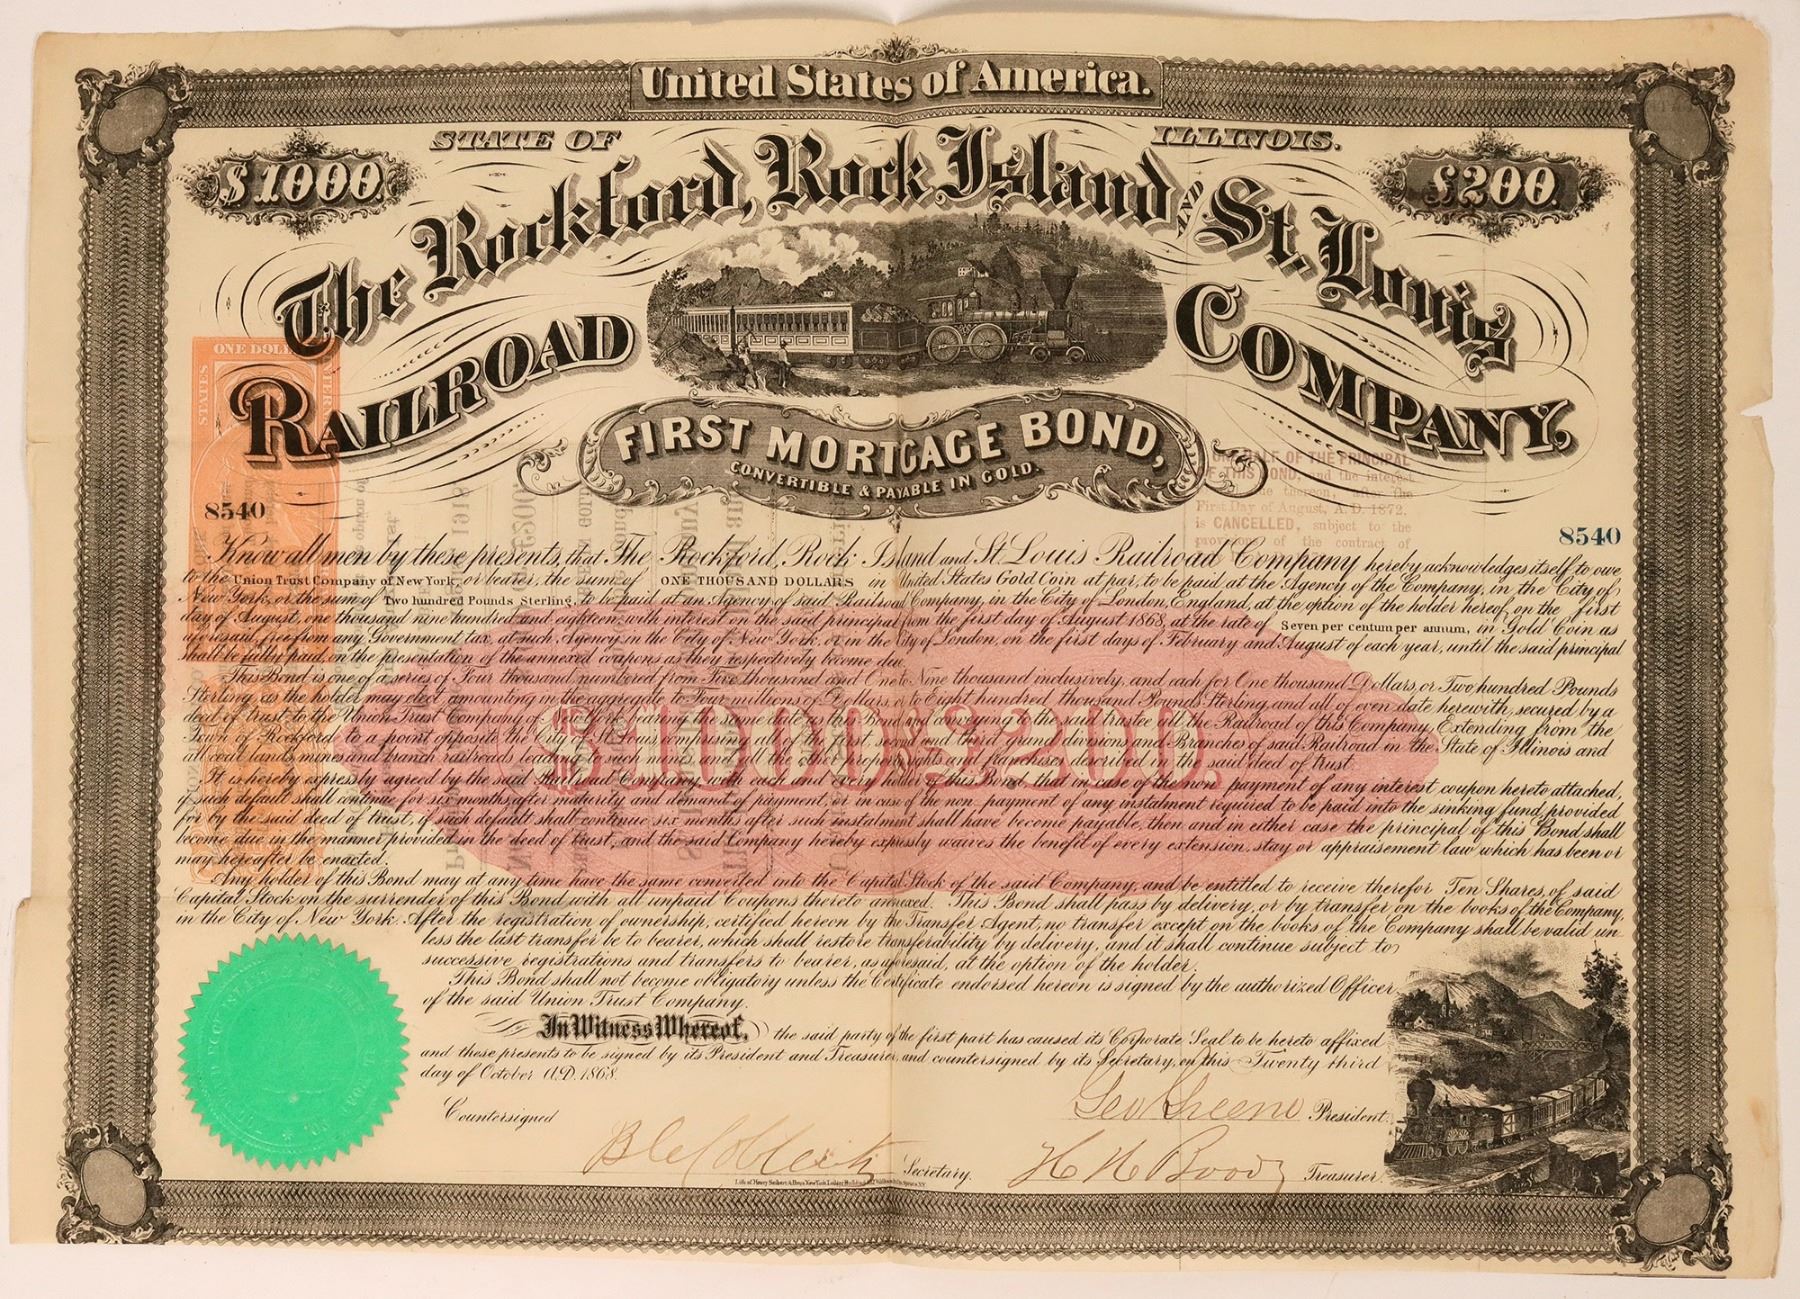 United States of America.
STATE OF ILLINOIS.
$1000.
£200.
The Rockford, Rock Island AND St. Louis
RAILROAD COMPANY.
FIRST MORTGAGE BOND,
CONVERTIBLE & PAYABLE IN GOLD.
ONE DOLL
STATES
HALF OF THE PRINCIPAL
OF THIS BOND, and the interest
due thereon, after the
First Day of August, A. D. 1872.
is CANCELLED, subject to the
provisions of the contract of
8540
8540
Know all men by these presents, that The Rockford, Rock Island and St. Louis Railroad Company hereby acknowledges itself to owe
to the Union Trust Company of New York, or bearer, the sum of ONE THOUSAND DOLLARS in United States Gold Coin at par, to be paid at the Agency of the Company, in the City of
New York, or the sum of Two hundred Pounds Sterling, to be paid at an Agency of said Railroad Company, in the City of London, England, at the option of the holder hereof, on the first
day of August, one thousand nine hundred and eighteen, with interest on the said principal from the first day of August 1868, at the rate of Seven per centum per annum, in Gold Coin as
aforesaid, free from any Government tax, at such Agency in the City of New York, or in the City of London, on the first days of February and August of each year, until the said principal
shall be fully paid, on the presentation of the annexed coupons as they respectively become due.
This Bond is one of a series of Four thousand, numbered from Five thousand and One to Nine thousand inclusively, and each for One thousand Dollars, or Two hundred Pounds
Sterling, as the holder may elect, amounting in the aggregate to Four millions of Dollars, or to Eight hundred thousand Pounds Sterling, and all of even date herewith, secured by a
deed of trust to the Union Trust Company of New York, bearing the same date as this Bond and conveying to the said trustee all the Railroad of this Company, Extending from the
Town of Rockford to a point opposite the City of St. Louis, comprising all of the first, second and third grand divisions and Branches of said Railroad in the State of Illinois and
all coal lands, mines and branch railroads leading to such mines, and all the other property rights and franchises described in the said deed of trust.
$1000 £200.
It is hereby expressly agreed by the said Railroad Company, with each and every holder of this Bond, that in case of the non payment of any interest coupon hereto attached,
if such default shall continue for six months after maturity and demand of payment, or in case of the non payment of any instalment required to be paid into the sinking fund provided
for by the said deed of trust, if such default shall continue six months after such instalment shall have become payable, then and in either case the principal of this Bond shall
become due in the manner provided in the deed of trust, and the said Company hereby expressly waives the benefit of every extension, stay or appraisement law which has been or
may hereafter be enacted.
Any holder of this Bond may at any time have the same converted into the Capital Stock of the said Company, and be entitled to receive therefor Ten Shares, of said
Capital Stock on the surrender of this Bond with all unpaid Coupons thereto annexed. This Bond shall pass by delivery, or by transfer on the books of the Company,
in the City of New York. After the registration of ownership, certified hereon by the Transfer Agent, no transfer except on the books of the Company shall be valid un-
less the last transfer be to bearer, which shall restore transferability by delivery, and it shall continue subject to
successive registrations and transfers to bearer, as aforesaid, at the option of the holder.
This Bond shall not become obligatory unless the Certificate endorsed hereon is signed by the authorized Officer
of the said Union Trust Company.
In Witness Whereof, the said party of the first part has caused its Corporate Seal to be hereto affixed
and these presents to be signed by its President and Treasurer, and countersigned by its Secretary, on this Twenty third
day of October A.D. 1868.
Geo Greene President.
Countersigned
Secretary.
H H Boody Treasurer.